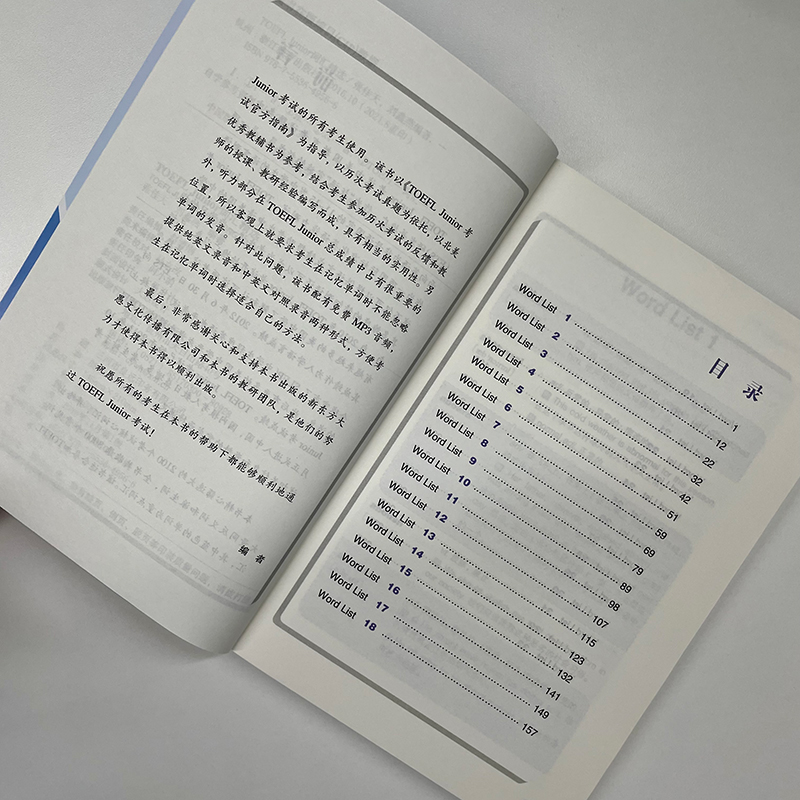 Junior 考试的所有考生使用。该书以《TOEFL Junior 考
试官方指南》为指导，以历次考试真题为依托，以北美
优秀教辅书为参考，结合考生参加历次考试的反馈和教
师的授课、教研经验编写而成，具有相当的实用性。另
外，听力部分在 TOEFL Junior 总成绩中占有很重要的
位置，所以客观上就要求考生在记忆单词时不能忽略
单词的发音。针对此问题，该书配有免费 MP3 音频，
提供纯英文录音和中英文对照录音两种形式，方便考
生在记忆单词时选择适合自己的方法。
最后，非常感谢关心和支持本书出版的新东方大
愚文化传播有限公司和本书的教研团队，是他们的努
力才使得本书得以顺利出版。
祝愿所有的考生在本书的帮助下都能够顺利地通
过 TOEFL Junior 考试！
编 者
目 录
Word List 1 ........ 1
Word List 2 ........ 12
Word List 3 ........ 22
Word List 4 ........ 32
Word List 5 ........ 42
Word List 6 ........ 51
Word List 7 ........ 59
Word List 8 ........ 69
Word List 9 ........ 79
Word List 10 ........ 89
Word List 11 ........ 98
Word List 12 ........ 107
Word List 13 ........ 115
Word List 14 ........ 123
Word List 15 ........ 132
Word List 16 ........ 141
Word List 17 ........ 149
Word List 18 ........ 157
Word List 1